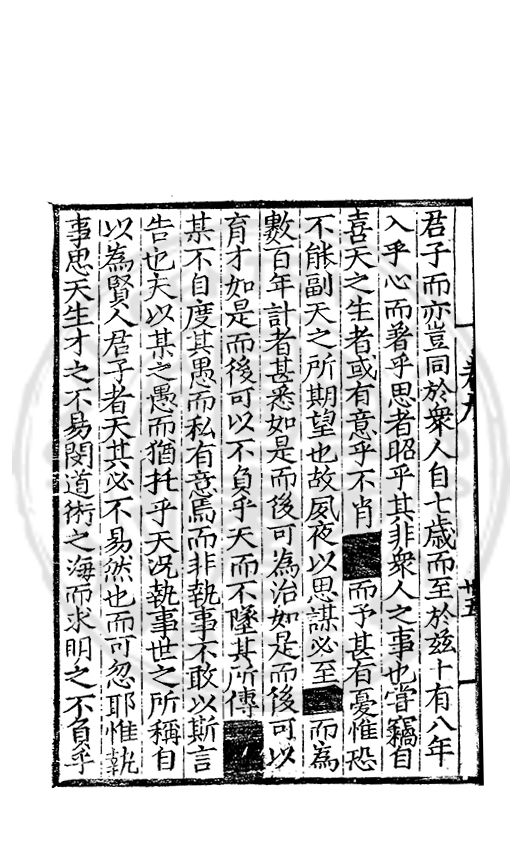 君子而亦豈同於衆人自七歳而至於茲十有八年
入乎心而著乎思者昭乎其非衆人之事也嘗竊自
喜天之生者或有意乎不肖■而予甚有憂惟恐
不能副天之所期望也故夙夜以思謀必至■而為
數百年計者甚悉如是而後可為治如是而後可以
育才如是而後可以不負乎天而不墜其所傳■
某不自度其愚而私有意焉而非執事不敢以斯言
告也夫以某之愚而猶托乎天况執事世之所稱自
以為賢人君子者天其必不易然也而可忽耶惟執
事思天生才之不易閔道術之海而求明之不負乎
卷九
廿五